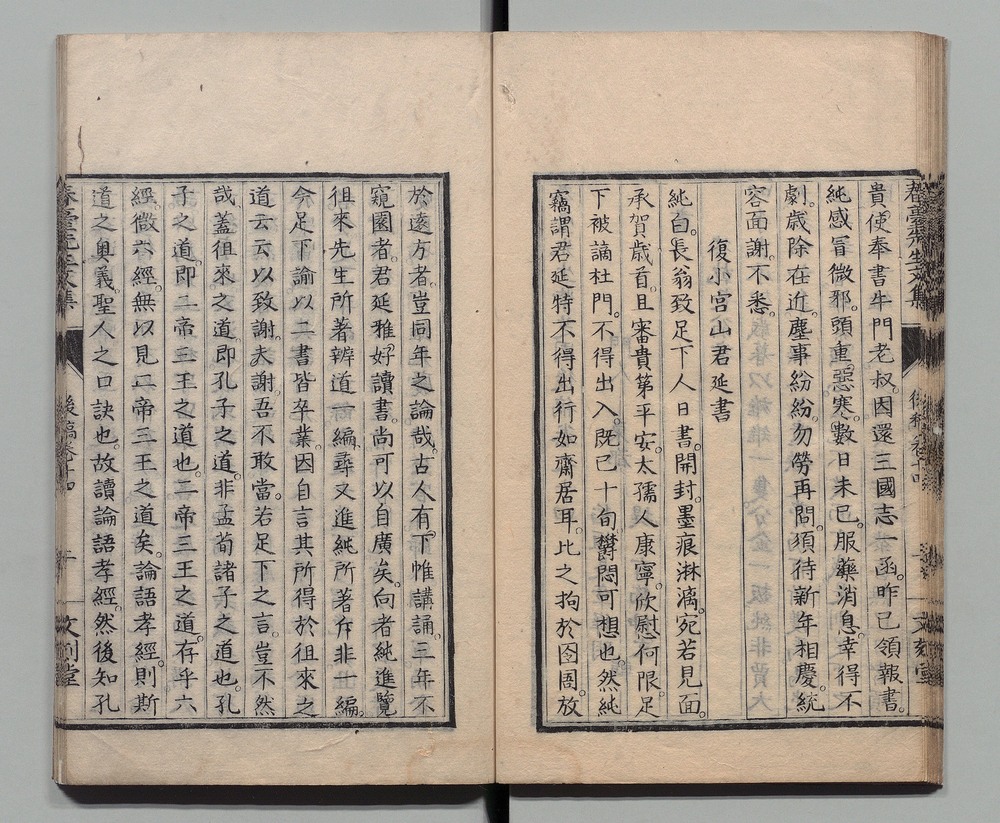 貴使奉書牛門老叔。因還三國志一函。昨已領報書。
純感冒微邪。頭重惡寒。數日未已。服藥消息。幸得不
劇。歲除在近。塵事紛紛。勿勞再問。須待新年相慶。統
容面謝。不悉。
復小宮山君延書
純白。長翁致足下人日書。開封墨痕淋漓。宛若見面。
承賀歲首。且審貴第平安。太孺人康寧。欣慰何限。足
下被謫杜門。不得出入。既已十旬。鬱悶可想也。然純
竊謂君延特不得出行如齋居耳。比之拘於囹圄。放
於遠方者。豈同年之論哉。古人有下帷講誦。三年不
窺園者。君延雅好讀書。尚可以自廣矣。向者純進覽
徂來先生所著辨道一編。尋又進純所著斥非一編。
今足下諭以二書皆卒業。因自言其所得於徂來之
道云云以致謝。夫謝吾不敢當。若足下之言。豈不然
哉。蓋徂來之道。即孔子之道。非孟荀諸子之道也。孔
子之道。即二帝三王之道也。二帝三王之道。存乎六
經。微六經。無以見二帝三王之道矣。論語孝經。則斯
道之奧義。聖人之口訣也。故讀論語孝經。然後知孔
春臺先生文集
後稿卷十四
十
文刻堂